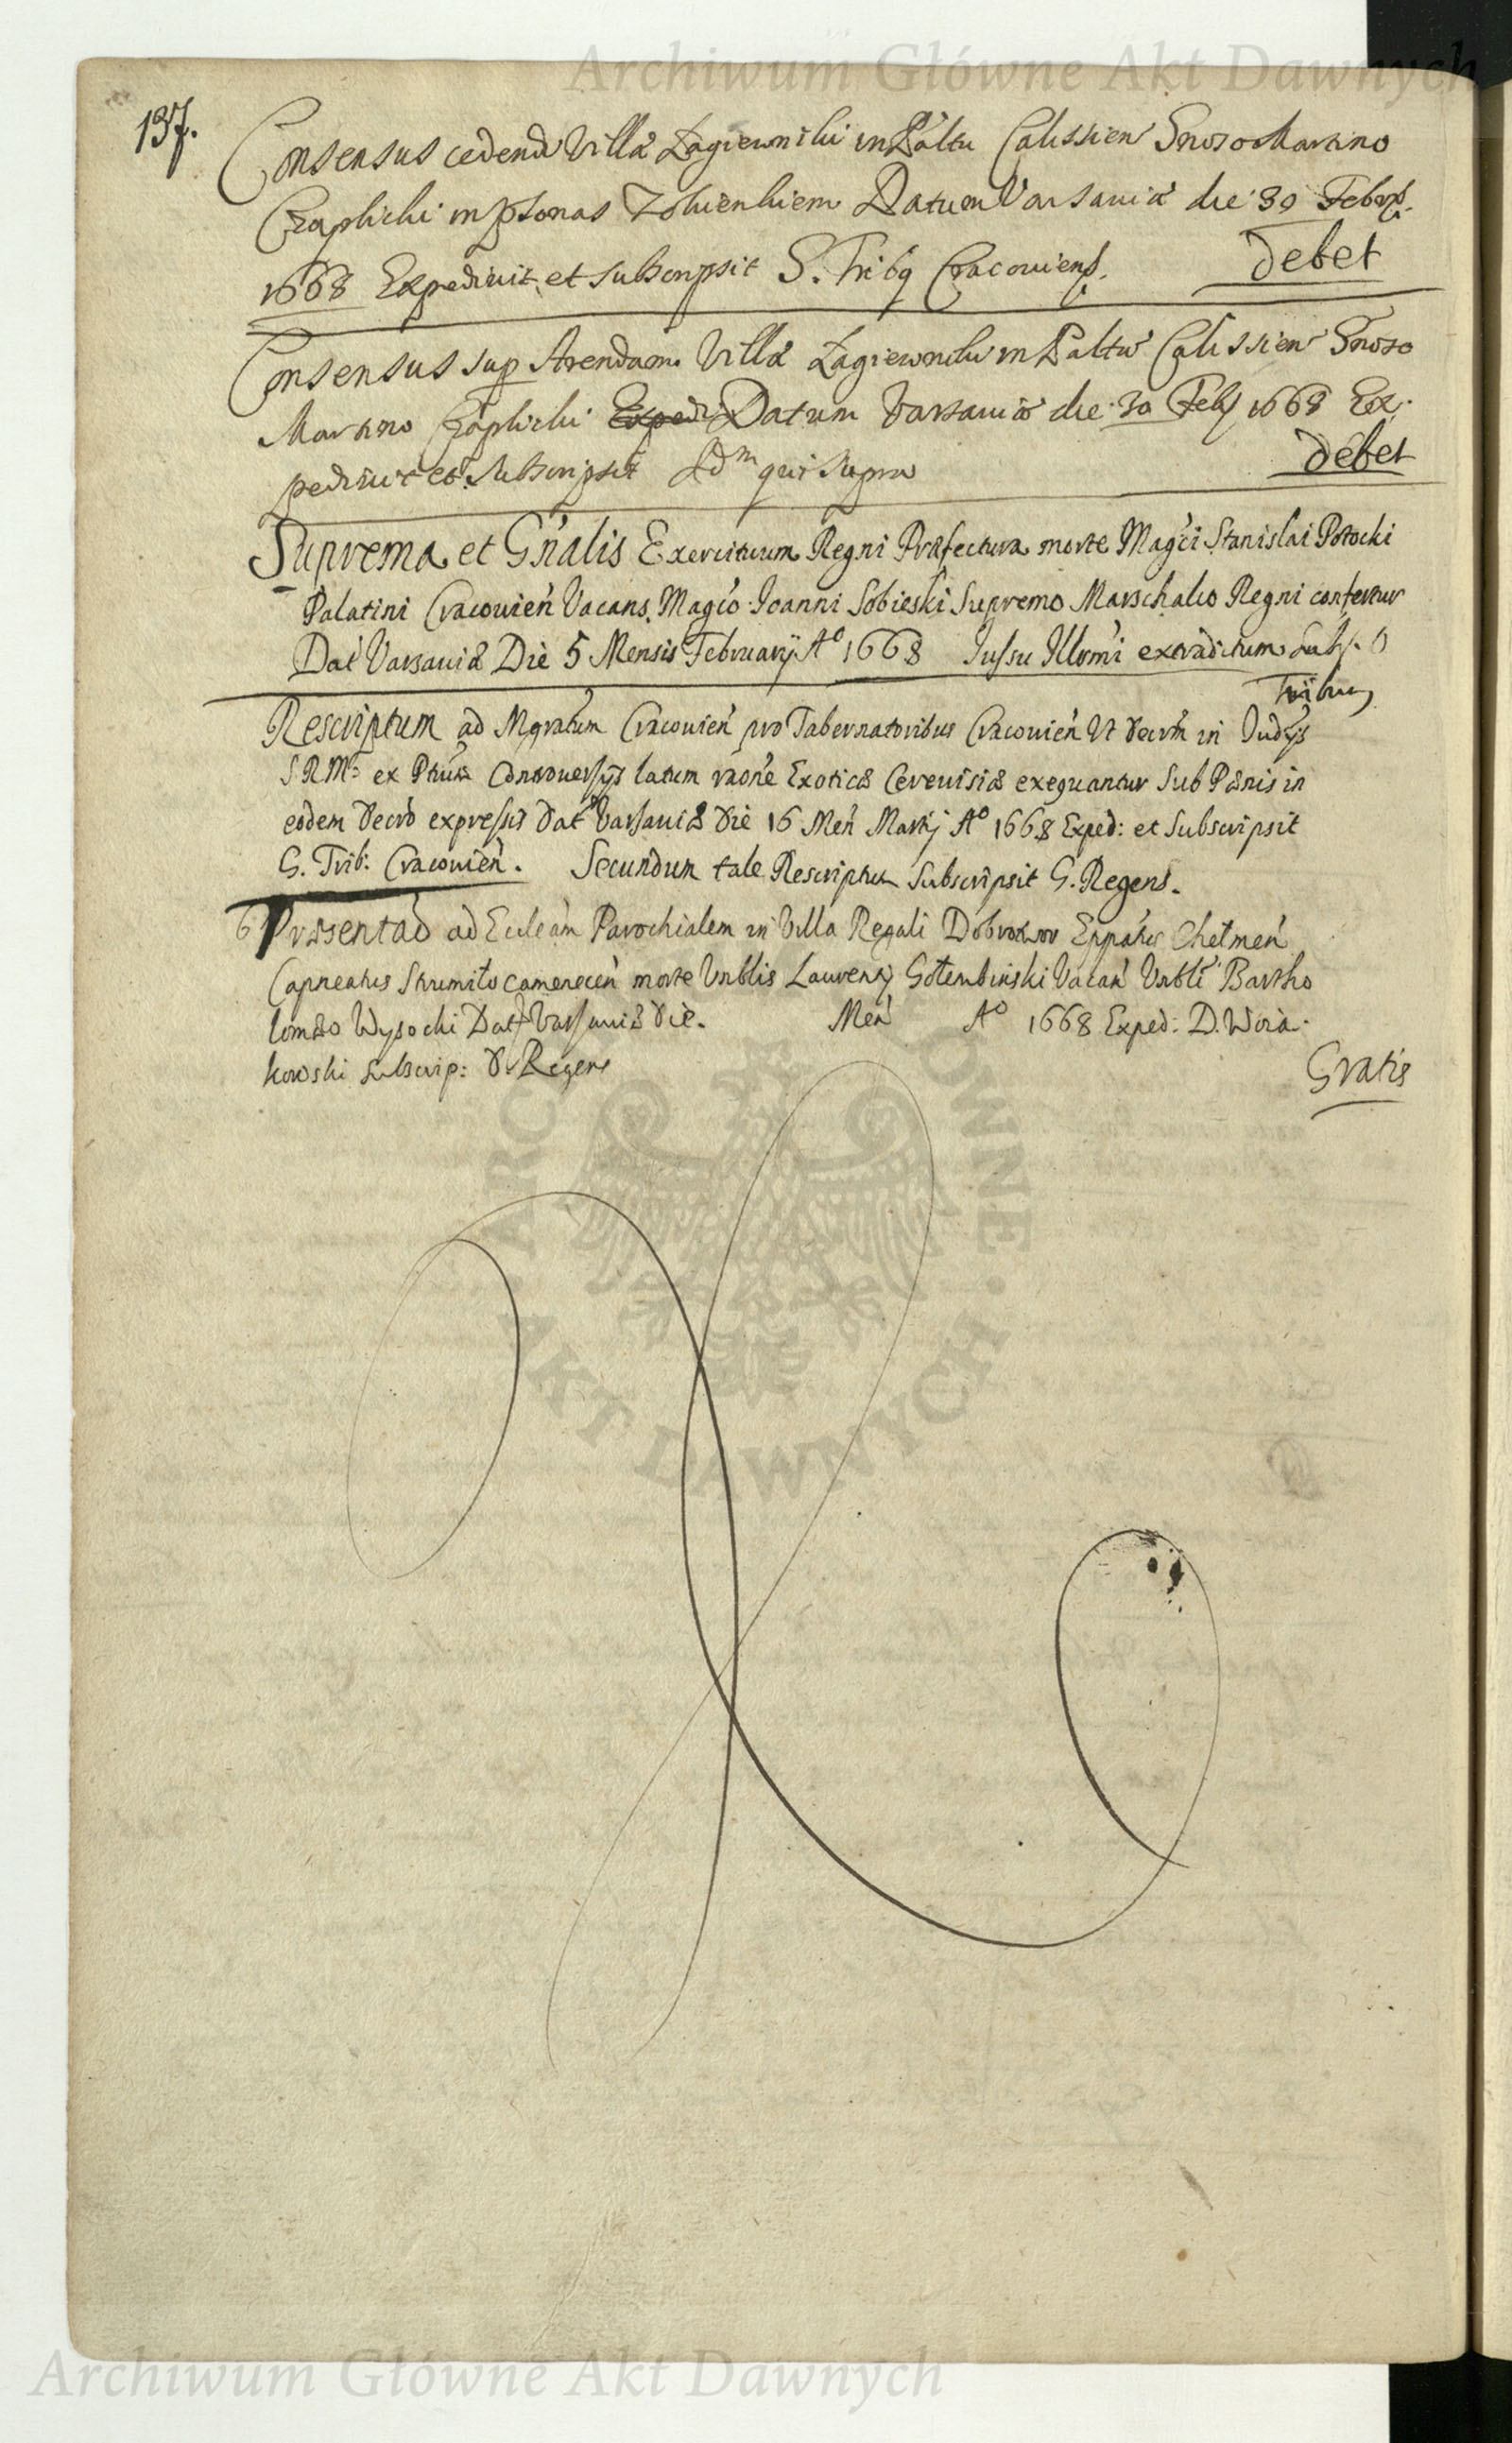 Archiwum Główne Akt Dawnych
137.
Consensus cedendi Villã Łagiewniki in Paltu Calissien Gnoso Martino
Czaplicki in psonas Datum Varsaviæ die 30 Febr.
1668 Expedivit et subscripsit S. Tribq Cracoviens.
debet
Consensus sup Arendam Villã Łagiewniki in Paltu Calissien Gnoso
Martino Czaplicki Expedi Datum Varsaviæ die 30 Feb 1668 Ex-
pedivit et Subscripsit Idm qui supra
debet
Suprema et Gn̄alis Exercituum Regni Præfectura morte Mag'ci Stanislai Potocki
Palatini Cracovień Vacans Mag'co Joanni Sobieski Supremo Marschalco Regni confertur
Dat Varsaviæ Die 5 Mensis Februarij Aº 1668 Jussu Illm̄i extraditum Subs. G
Tribun
Rescriptum ad Mgratum Cracovień pro Tabernatoribus Cracovień Vt decrm̄ in Judijs
S R Mᵗⁱˢ ex controversijs latum raõne Exoticæ Cerevisiæ exequantur Sub Pænis in
eodem decrõ expressis Dat Varsaviæ die 16 Meń Martij Aº 1668 Exped: et Subscripsit
G. Trib: Cracovień. Secundum tale Rescriptum Subscripsit G. Regens.
6 Præsentaõ ad Eccleãm Parochialem in Villa Regali Eppatus Chełmeń
Capneatus Strumiło camenecen morte Vnblis Laurentij Gołembiński Vacań Vnbli Bartho
lomæo Wysocki Dat Varsaviæ die. Meń Aº 1668 Exped: D. Woia-
kowski subscrip: D. Regens
Gratis
ARCHIWUM GŁÓWNE · AKT DAWNYCH ·
Archiwum Główne Akt Dawnych